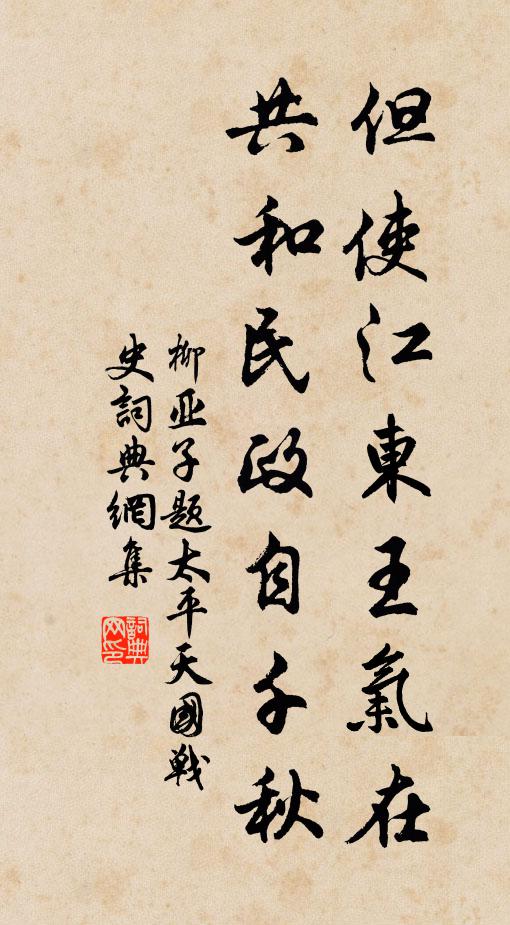 但使江東王氣在
共和民政自千秋
柳亚子题太平天國戦
史詞典網集
詞典
网印